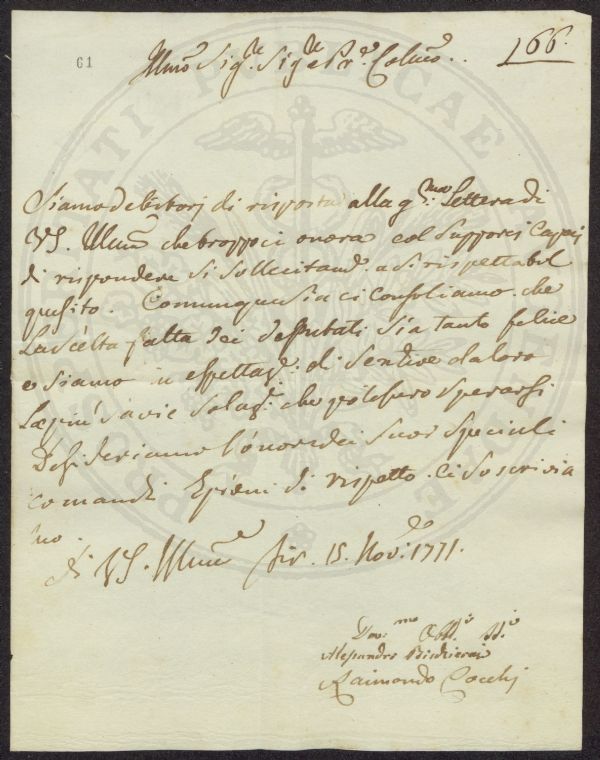 61
166.
Illmo Sigre Sigre e Pre Colmo..
Siamo debitorj di risposta alla gma Lettera di
VS. Illma che troppo ci onora col supporci capaci
di rispondere si sollecitamd. a di rispettabil
quesito. Comunque sia ci consoliamo che
la scelta fatta dei deputati sia tanto felice
e siamo in espettage. di sentire da loro
le piu' savie solage. che potessero sperarsi
Desideriamo l'onor dei suoi speciali
comandi Epieni di rispetto ci soscrivia
mo.
di VS. Illma Fir. 15. Nove. 1771.
Dev:mo Obb:i S:i
Alessandro Bicchierai
Raimondo Cocchj